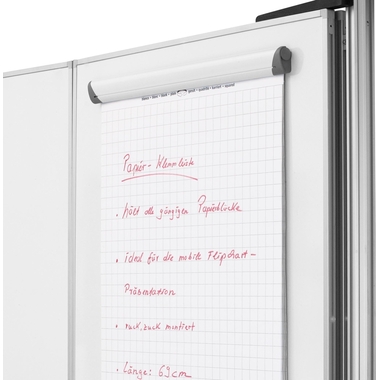 Papier-Klemmleiste
• hält alle gängigen Papierblöcke
• ideal für die mobile Flipchart-
Präsentation
• ruck, zuck montiert
• Länge: 69cm